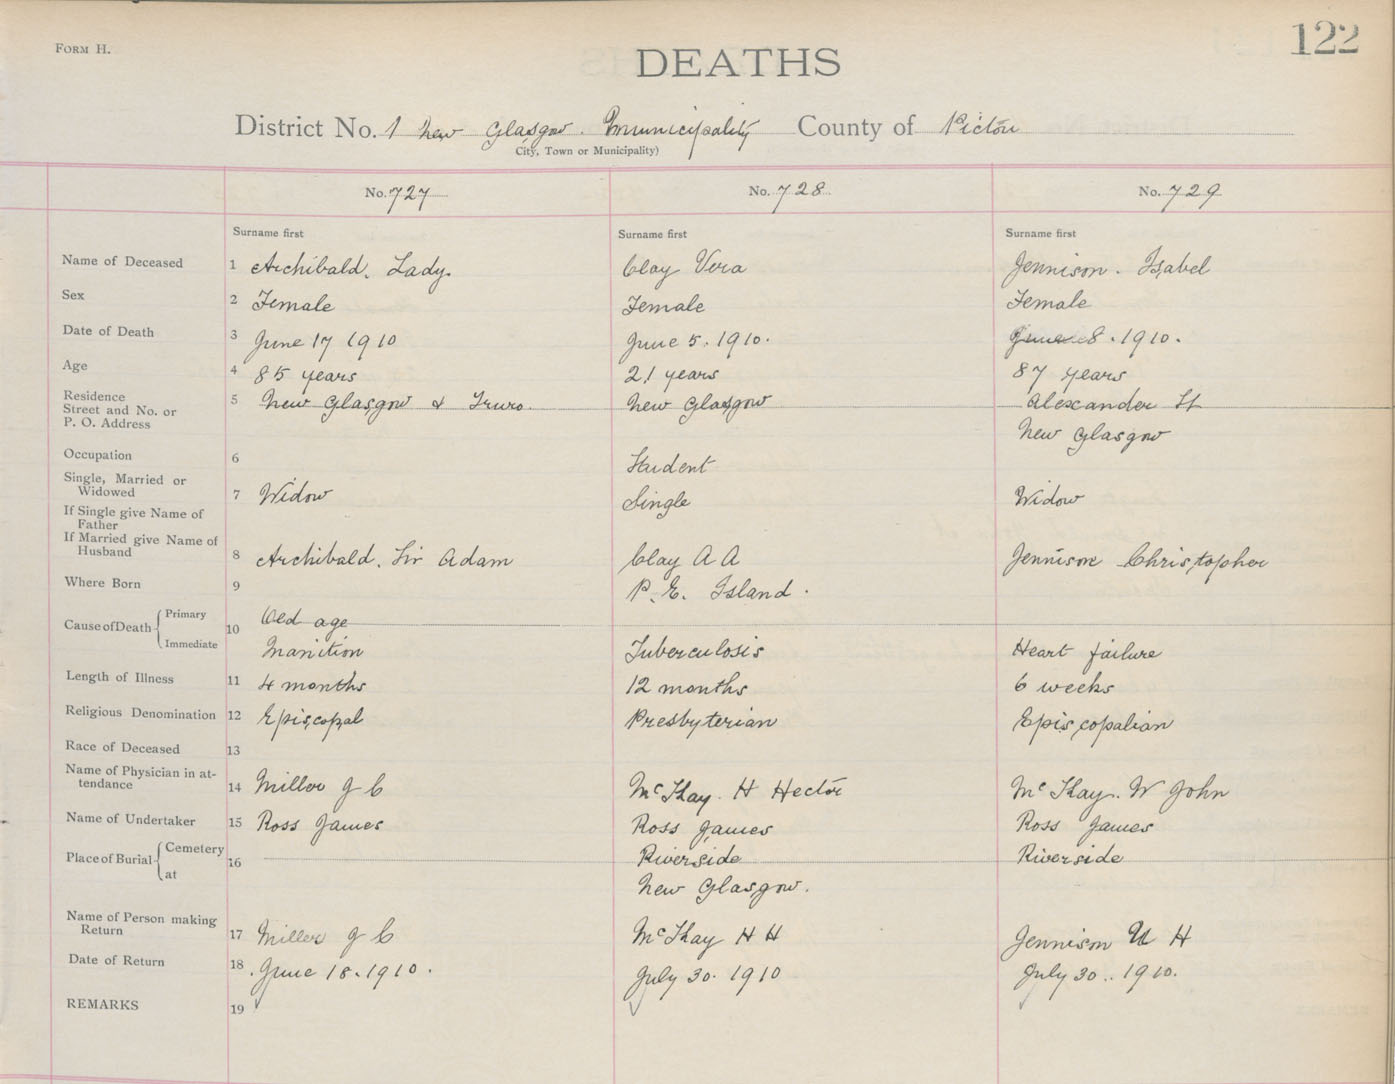 122
FORM H.
DEATHS
District No. 1 New Glasgow. Municipality County of Pictou
City, Town or Municipality)
No. 727 No. 728 No. 729
Surname first Surname first Surname first
Name of Deceased 1 Archibald. Lady. Clay Vera Jennison. Isabel
Sex 2 Female Female Female
Date of Death 3 June 17 1910 June 5. 1910. June 8. 1910.
Age 4 85 years 21 years 87 years
Residence
Street and No. or
P. O. Address 5 New Glasgow & Truro. New Glasgow Alexander St
New Glasgow
Occupation 6 Student
Single, Married or
Widowed 7 Widow Single Widow
If Single give Name of
Father
If Married give Name of
Husband 8 Archibald. Sir Adam Clay A A Jennison Christopher
Where Born 9 P. E. Island.
Cause of Death Primary 10 Oed age
Immediate Inanition Tuberculosis Heart failure
Length of Illness 11 4 months 12 months 6 weeks
Religious Denomination 12 Episcopal Presbyterian Episcopalian
Race of Deceased 13
Name of Physician in at-
tendance 14 Miller J C McKay. H Hector McKay. W John
Name of Undertaker 15 Ross James Ross James Ross James
Place of Burial Cemetery 16 Riverside Riverside
at New Glasgow.
Name of Person making
Return 17 Miller J C McKay H H Jennison H
Date of Return 18 June 18. 1910. July 30. 1910 July 30.. 1910.
REMARKS 19